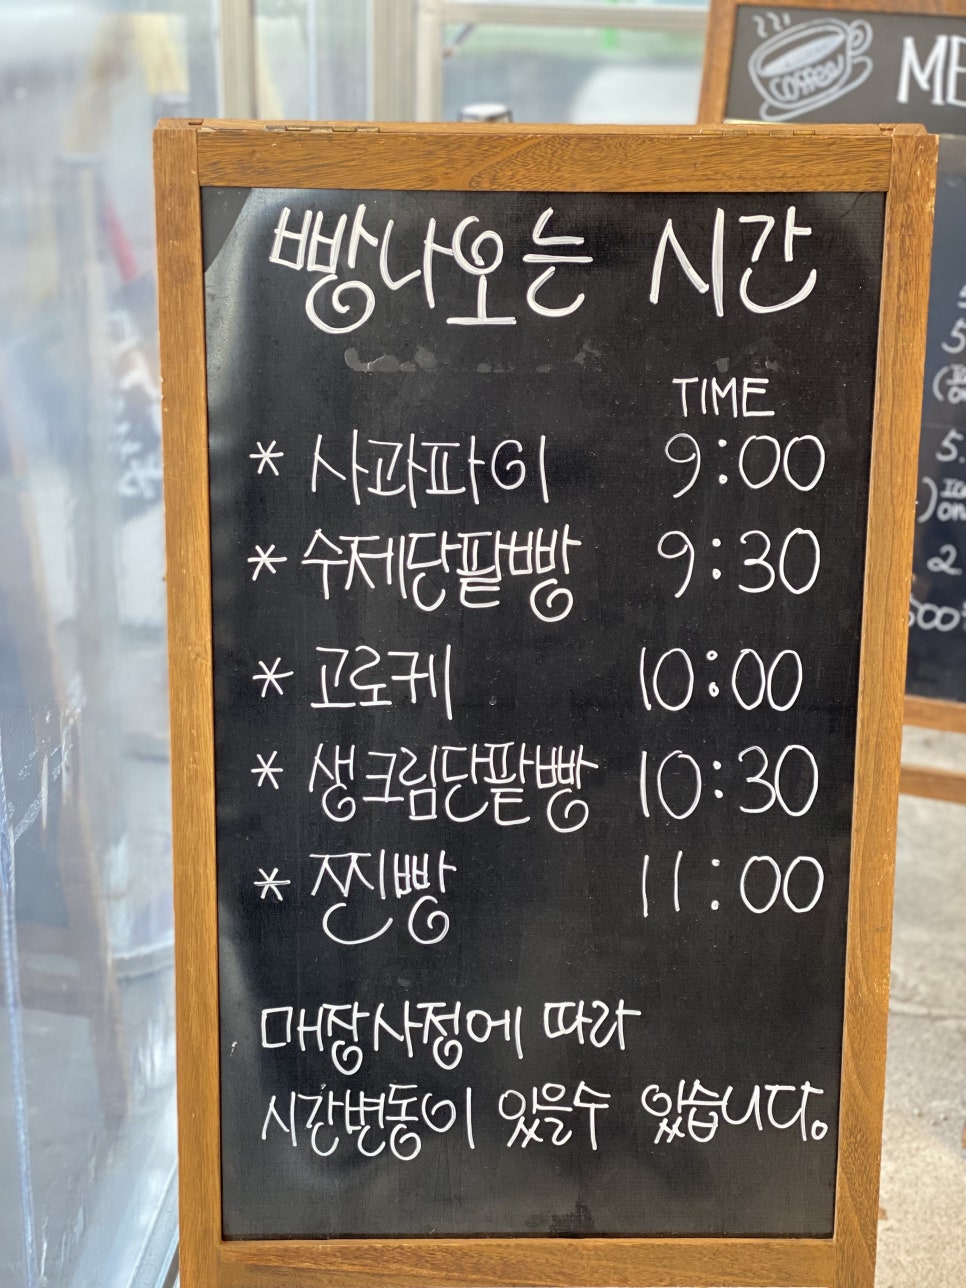 빵나오는 시간
TIME
* 사과파이 9:00
* 수제단팥빵 9:30
* 고로케 10:00
* 생크림단팥빵 10:30
* 찐빵 11:00
매장사정에 따라
시간변동이 있을수 있습니다.
coffee